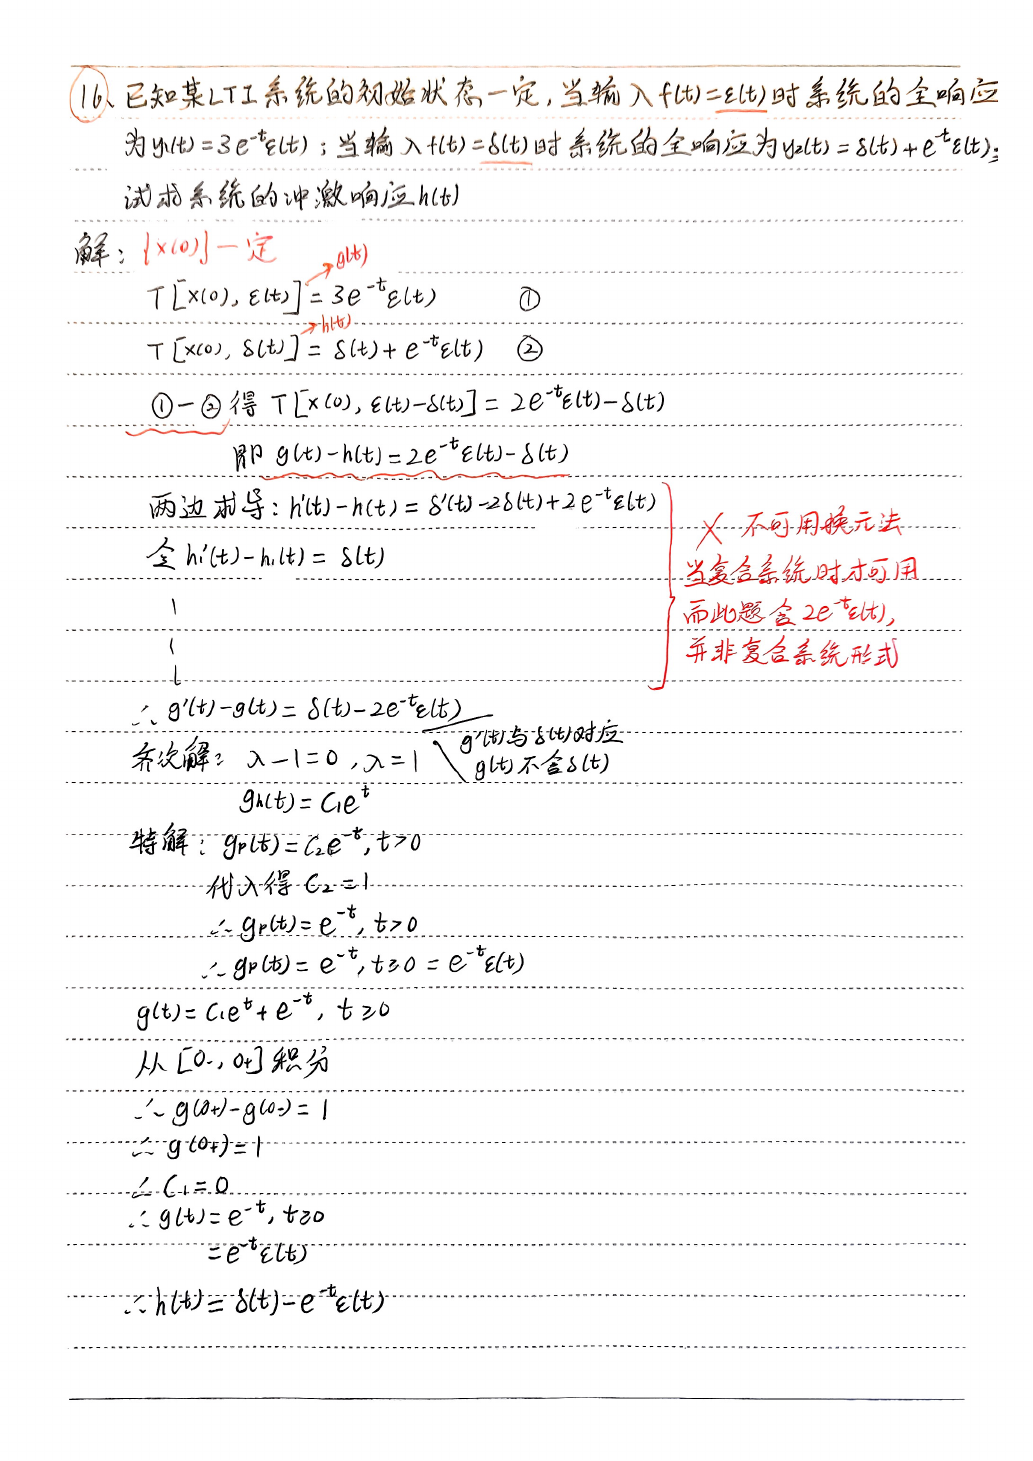 16、已知某LTI系统的初始状态一定,当输入f(t)=ε(t)时系统的全响应
为y₁(t)=3e^{-t}ε(t);当输入f(t)=δ(t)时系统的全响应为y₂(t)=δ(t)+e^{-t}ε(t);
试求系统的冲激响应h(t)
解: {x(0)}一定
g(t)
T[x(0), ε(t)]=3e^{-t}ε(t) ①
h(t)
T[x(0), δ(t)]=δ(t)+e^{-t}ε(t) ②
①-②得 T[x(0), ε(t)-δ(t)]=2e^{-t}ε(t)-δ(t)
即 g(t)-h(t)=2e^{-t}ε(t)-δ(t)
两边求导: h'(t)-h(t)=δ'(t)-2δ(t)+2e^{-t}ε(t)
令 h₁'(t)-h₁(t)=δ(t)
× 不可用换元法
当复合系统时才可用
而此题含2e^{-t}ε(t),
并非复合系统形式
∴ g'(t)-g(t)=δ(t)-2e^{-t}ε(t)
g'(t)与δ(t)对应
g(t)不含δ(t)
齐次解: λ-1=0, λ=1
gh(t)=C₁e^{t}
特解: gp(t)=C₂e^{-t}, t>0
代入得 C₂=1
∴ gp(t)=e^{-t}, t>0
∴ gp(t)=e^{-t}, t≥0 = e^{-t}ε(t)
g(t)=C₁e^{t}+e^{-t}, t≥0
从[0-, 0+]积分
∴ g(0+)-g(0-)=1
∴ g(0+)=1
∴ C₁=0
∴ g(t)=e^{-t}, t≥0
=e^{-t}ε(t)
∴ h(t)=δ(t)-e^{-t}ε(t)